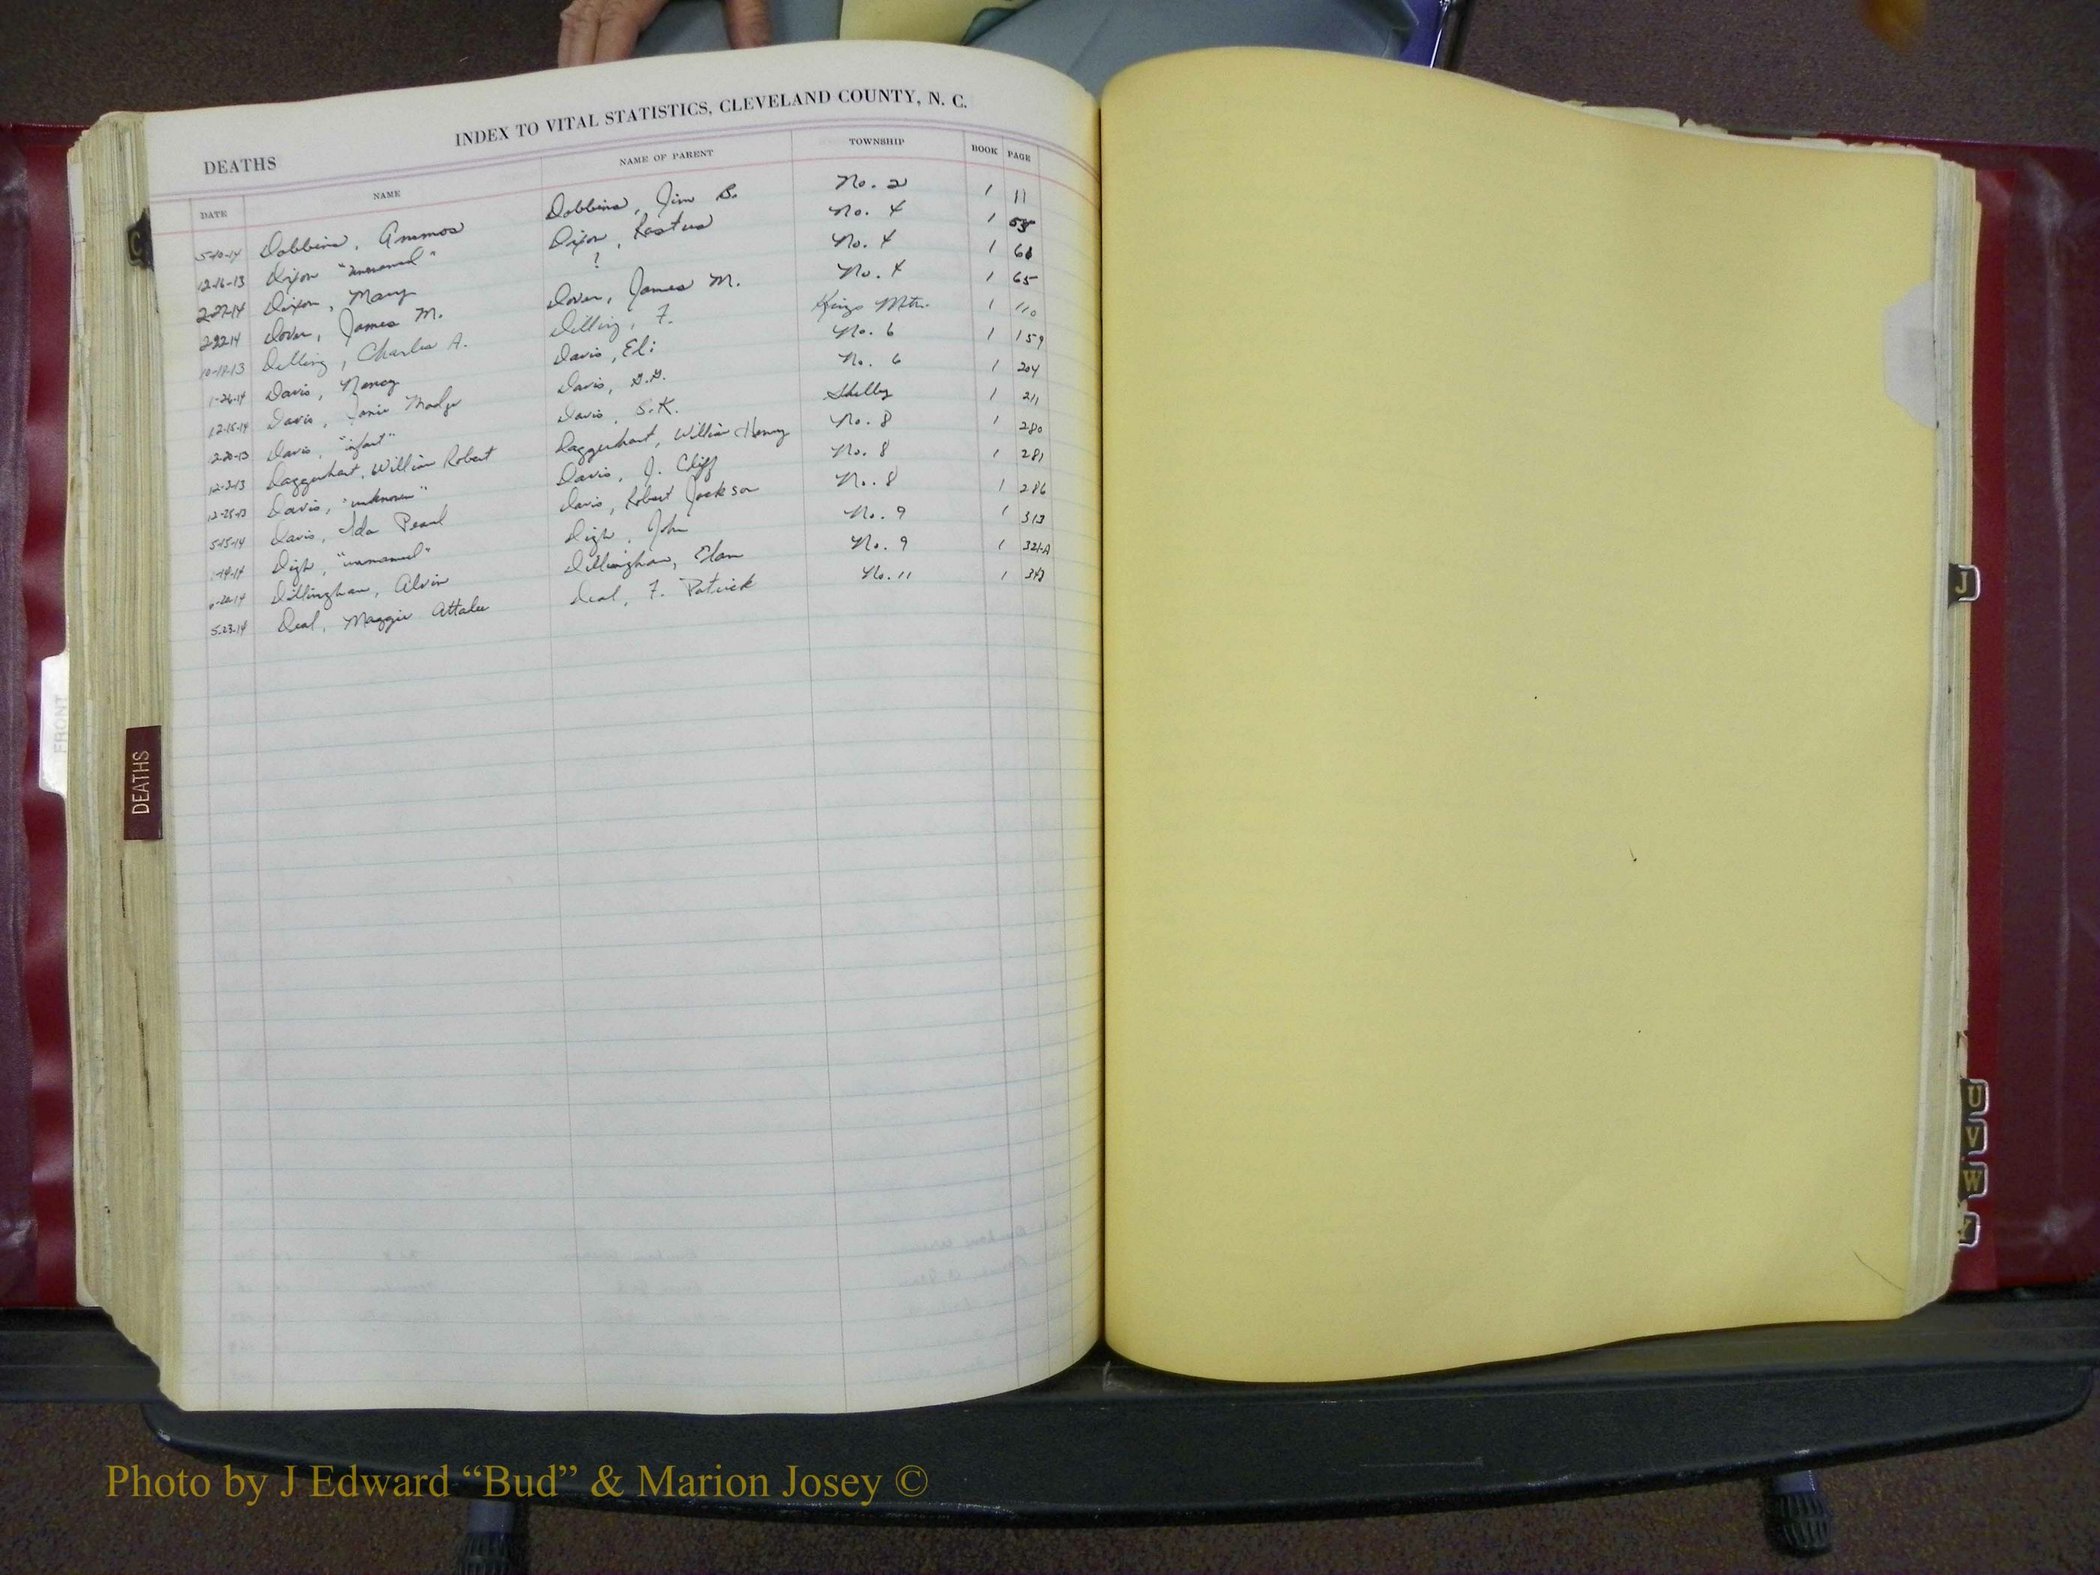 INDEX TO VITAL STATISTICS, CLEVELAND COUNTY, N. C.
DEATHS
DATE NAME NAME OF PARENT TOWNSHIP BOOK PAGE
5-10-14 Dobbins, Ammos Dobbins, Jim B. No. 2 1 11
12-16-13 Dixon "unnamed" Dixon, Rastus No. 4 1
2-27-14 Dixon, Mary ? No. 4 1
2-22-14 Dover, James M. Dover, James M. No. 4 1 65
Dilling, Charlie A. Dilling, F. Kings Mtn. 1 110
1-26-14 Davis, Nancy Davis, Eli No. 6 1 159
12-15-14 Davis, Janie Madge Davis, No. 6 1 204
Davis, "infant" Davis, S.K. Shelby 1 211
12-3-13 Daggerhart, William Robert Daggerhart, William Henry No. 8 1 280
12-25-13 Davis, "unknown" Davis, J. Cliff No. 8 1 281
5-15-14 Davis, Ida Pearl Davis, Robert Jackson No. 8 1 286
Digh, "unnamed" Digh, John No. 9 1 313
Dillingham, Alvin Dillingham, Elam No. 9 1 321-A
5-23-14 Deal, Maggie Attalee Deal, F. Patrick No. 11 1
C
FRONT
DEATHS
J
U
V
W
Y
Photo by J Edward “Bud” & Marion Josey ©